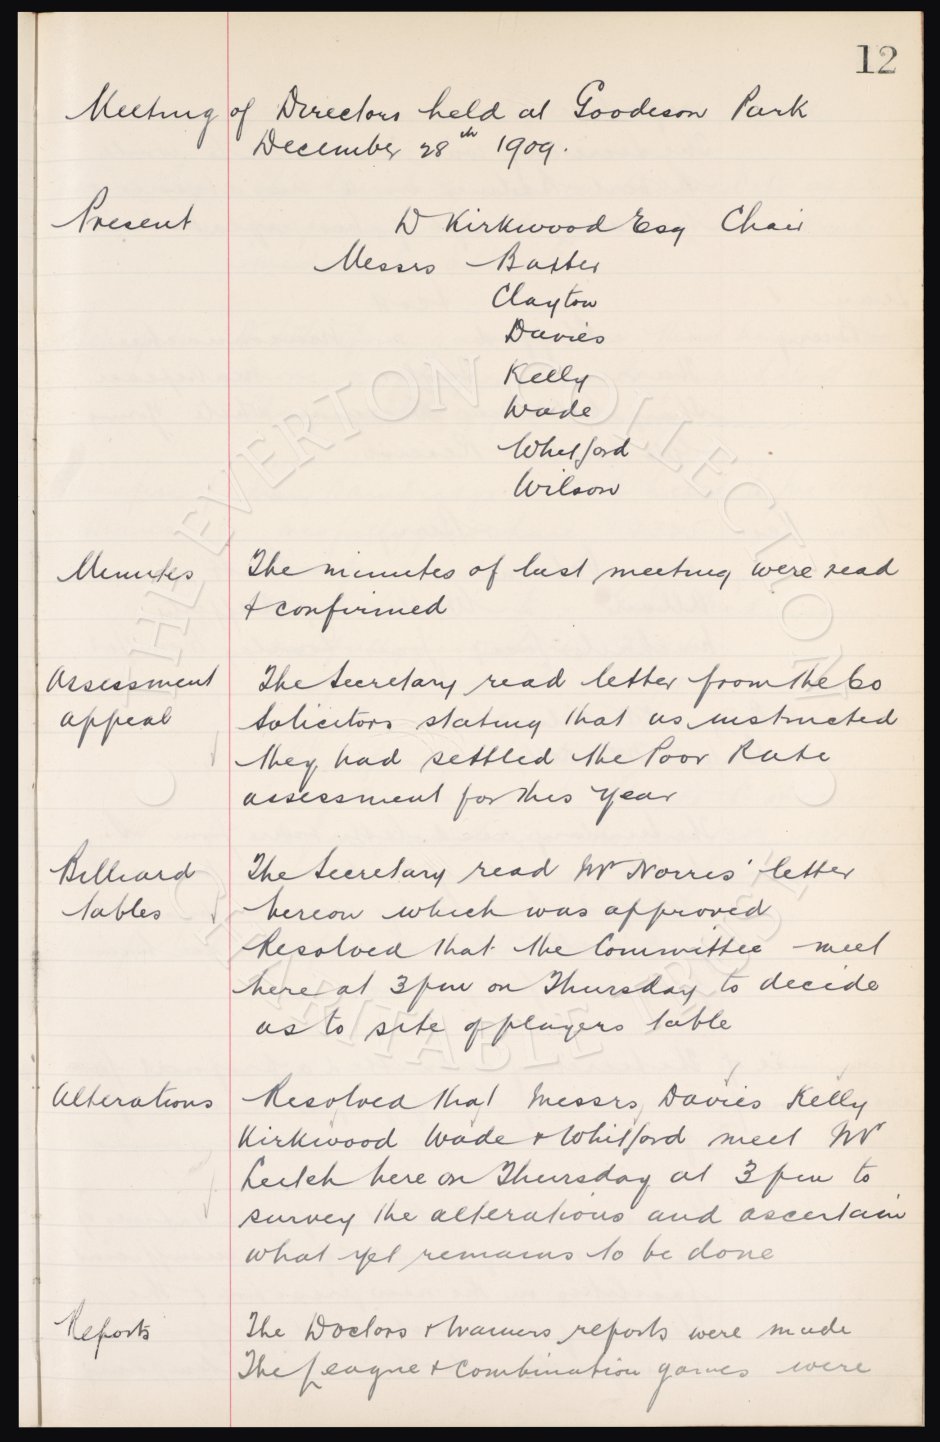 12
Meeting of Directors held at Goodison Park
December 28th 1909.
Present
D Kirkwood Esq Chair
Messrs Baxter
Clayton
Davies
Kelly
Wade
Whitford
Wilson
Minutes The minutes of last meeting were read
& confirmed
Assessment The Secretary read letter from the Co
appeal Solicitors stating that as instructed
they had settled the Poor Rate
assessment for this year
Billiard The Secretary read Mr Norris' letter
tables hereon which was approved
Resolved that the Committee meet
here at 3pm on Thursday to decide
as to site of players table
Alterations Resolved that Messrs Davies Kelly
Kirkwood Wade & Whitford meet Mr
Leitch here on Thursday at 3 pm to
survey the alterations and ascertain
what yet remains to be done
Reports The Doctors & trainers reports were made
The League & Combination games were
THE EVERTON COLLECTION
CHARITABLE TRUST